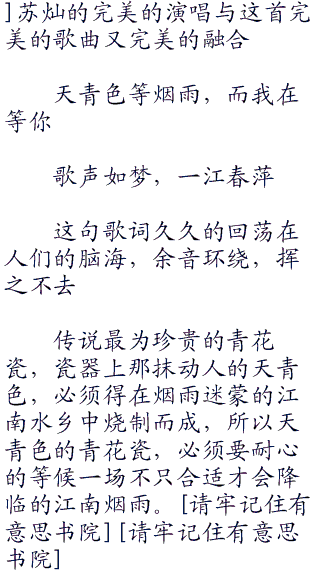 ]苏灿的完美的演唱与这首完
美的歌曲又完美的融合
天青色等烟雨，而我在
等你
歌声如梦，一江春萍
这句歌词久久的回荡在
人们的脑海，余音环绕，挥
之不去
传说最为珍贵的青花
瓷，瓷器上那抹动人的天青
色，必须得在烟雨迷蒙的江
南水乡中烧制而成，所以天
青色的青花瓷，必须要耐心
的等候一场不只合适才会降
临的江南烟雨。[请牢记住有
意思书院][请牢记住有意思
书院]